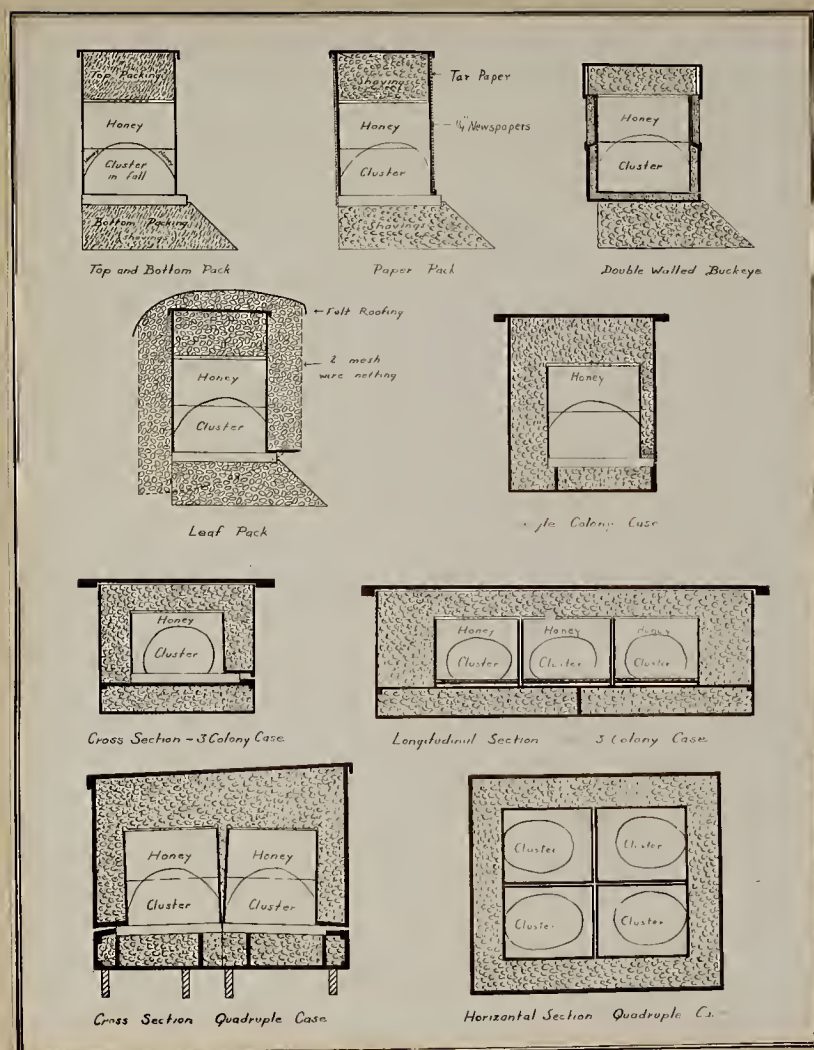 Top Packing
Honey
Honey
Honey
Cluster
in fall
Bottom Packing
Shavings
Top and Bottom Pack
Shavings
Tar Paper
Honey
1/4" Newspapers
Cluster
Shavings
Paper Pack
Honey
Cluster
Double Walled Buckeye
Felt Roofing
2 mesh
wire netting
Honey
Cluster
Leaf Pack
Honey
Colony Case
Honey
Cluster
Cross Section - 3 Colony Case
Honey
Honey
Honey
Cluster
Cluster
Cluster
Longitudinal Section 3 Colony Case
Honey
Honey
Cluster
Cluster
Cross Section Quadruple Case
Cluster
Cluster
Cluster
Cluster
Horizontal Section Quadruple